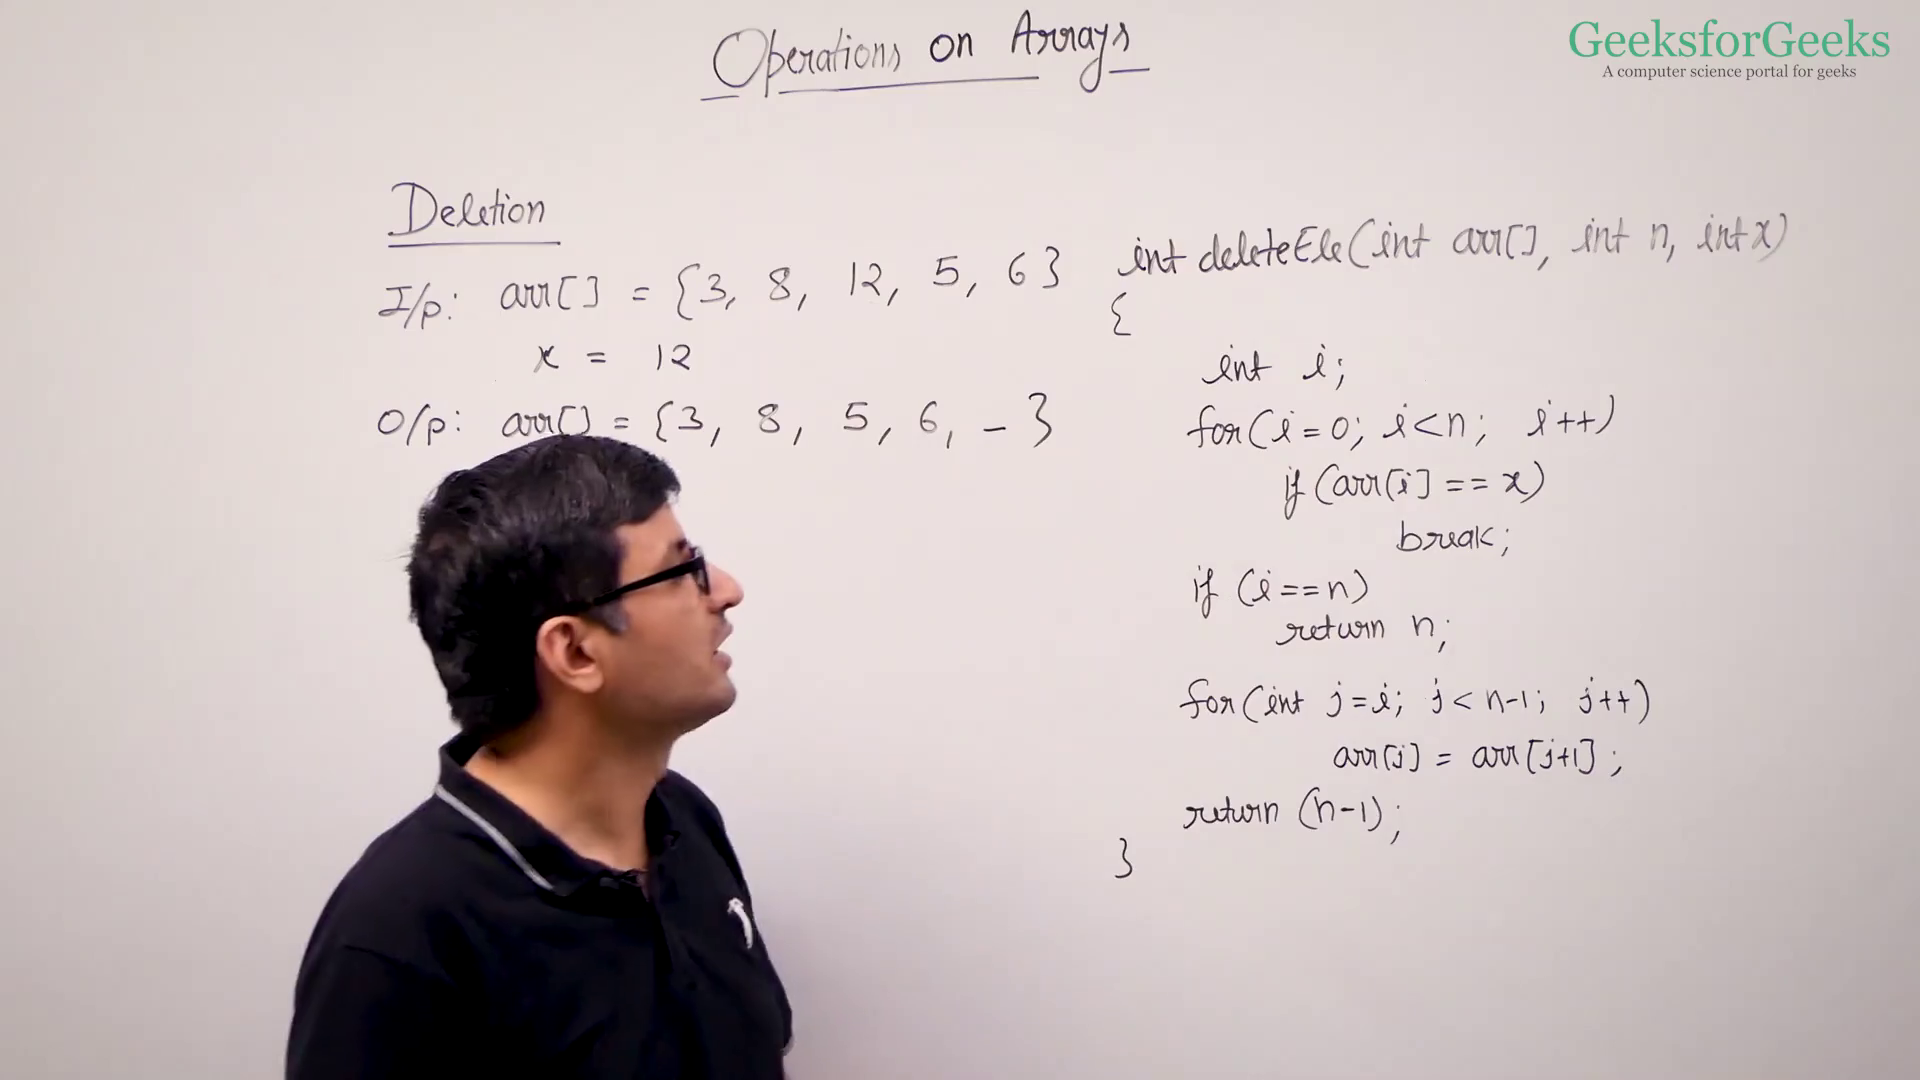 Operations on Arrays
GeeksforGeeks
A computer science portal for geeks
Deletion
I/p: arr[] = {3, 8, 12, 5, 6}
x = 12
O/p: arr[] = {3, 8, 5, 6, _ }
int deleteEle(int arr[], int n, int x)
{
int i;
for(i=0; i<n; i++)
if (arr[i] == x)
break;
if (i==n)
return n;
for(int j=i; j<n-1; j++)
arr[j] = arr[j+1];
return (n-1);
}